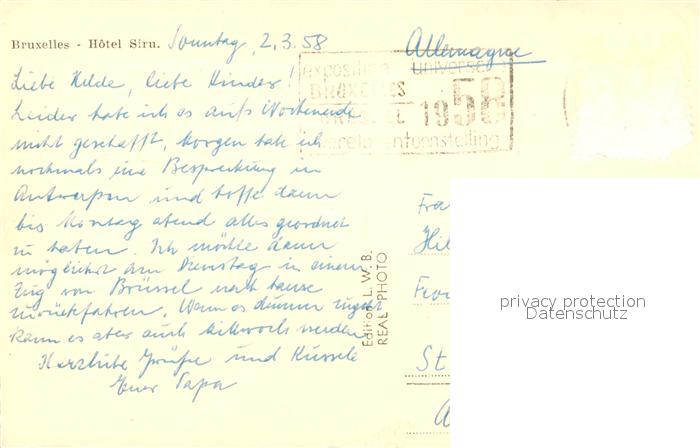 Bruxelles - Hôtel Siru. Sonntag, 2.3.58
Allemagne
Liebe Hilde, liebe Kinder!
Leider habe ich es aufs Wochenende
nicht geschafft, Morgen habe ich
nochmals eine Besprechung in
Antwerpen und hoffe dann
bis Montag abend alles geordnet
zu haben. Ich möchte dann
möglichst am Dienstag in einem
Zug von Brüssel nach hause
zurückfahren. Wenn es dumm zugeht
kann es aber auch Mittwoch werden
Herzliche Grüße und Küssele
Euer Papa
exposition universe
BRUXELLES
1958
wereldtentoonstelling
Edition L. W. B.
REAL PHOTO
Fra
Hil
St
privacy protection
Datenschutz